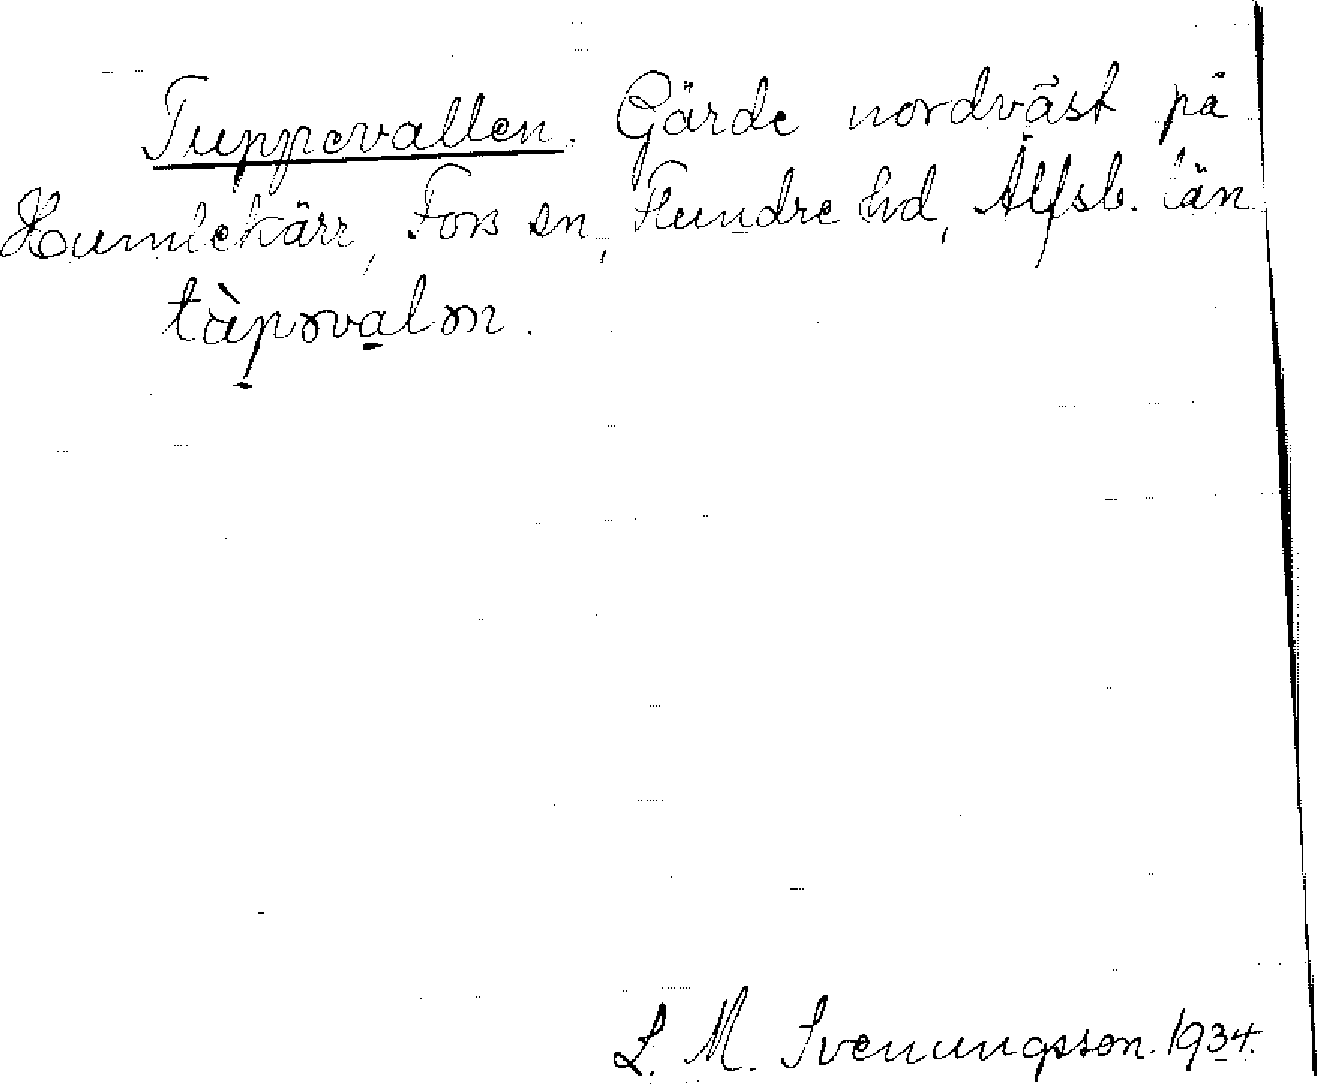 Tuppevallen. Gärde nordväst på
Humlekärr, Fors sn, Flundre hd, Älfsb. län
tàpəvalən.
L. M. Svenungsson. 1934.